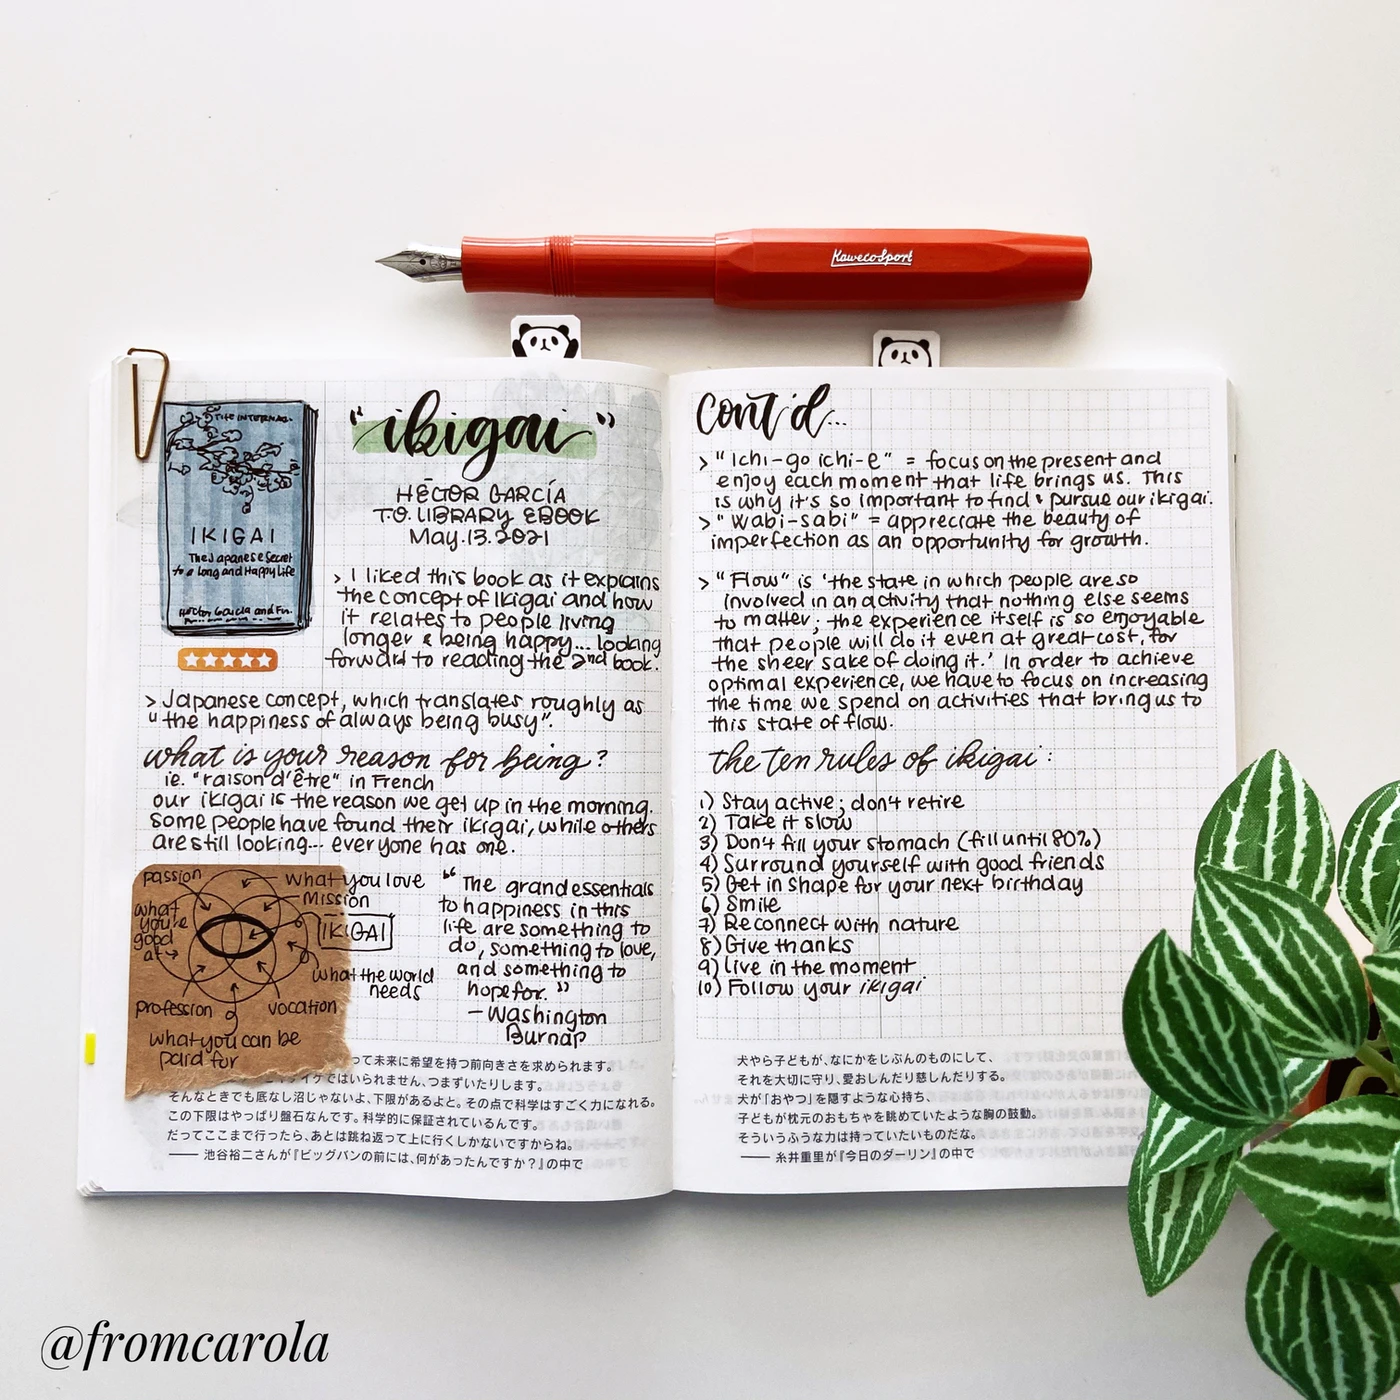 KawecoSport
THE INTERNAL.
IKIGAI
The Japanese Secret
to a Long and Happy Life
Héctor García and Fr.
"ikigai"
HÉCTOR GARCÍA
T.O. LIBRARY EBOOK
May.13.2021
> I liked this book as it explains
the concept of Ikigai and how
it relates to people living
longer & being happy... looking
forward to reading the 2nd book.
> Japanese concept, which translates roughly as
"the happiness of always being busy".
what is your reason for being?
ie. "raison d'être" in French
our ikigai is the reason we get up in the morning.
some people have found their ikigai, while others
are still looking... everyone has one.
passion
what you love
mission
what
you're
good
at
IKIGAI
what the world
needs
profession
vocation
what you can be
paid for
"The grand essentials
to happiness in this
life are something to
do, something to love,
and something to
hope for."
- Washington
Burnap
って未来に希望を持つ前向きさを求められます。
イケイケではいられません、つまずいたりします。
そんなときでも底なし沼じゃないよ、下限があるよと。その点で科学はすごく力になれる。
この下限はやっぱり盤石なんです。科学的に保証されているんです。
だってここまで行ったら、あとは跳ね返って上に行くしかないですからね。
—— 池谷裕二さんが『ビッグバンの前には、何があったんですか？』の中で
cont'd...
> "Ichi-go ichi-e" = focus on the present and
enjoy each moment that life brings us. This
is why it's so important to find & pursue our ikigai.
> "Wabi-sabi" = appreciate the beauty of
imperfection as an opportunity for growth.
> "Flow" is 'the state in which people are so
involved in an activity that nothing else seems
to matter; the experience itself is so enjoyable
that people will do it even at great cost, for
the sheer sake of doing it.' In order to achieve
optimal experience, we have to focus on increasing
the time we spend on activities that bring us to
this state of flow.
the ten rules of ikigai:
1) Stay active; don't retire
2) Take it slow
3) Don't fill your stomach (fill until 80%)
4) Surround yourself with good friends
5) Get in shape for your next birthday
6) Smile
7) Reconnect with nature
8) Give thanks
9) Live in the moment
10) Follow your ikigai
犬やら子どもが、なにかをじぶんのものにして、
それを大切に守り、愛おしんだり慈しんだりする。
犬が「おやつ」を隠すような心持ち、
子どもが枕元のおもちゃを眺めていたような胸の鼓動。
そういうふうな力は持っていたいものだな。
—— 糸井重里が『今日のダーリン』の中で
@fromcarola